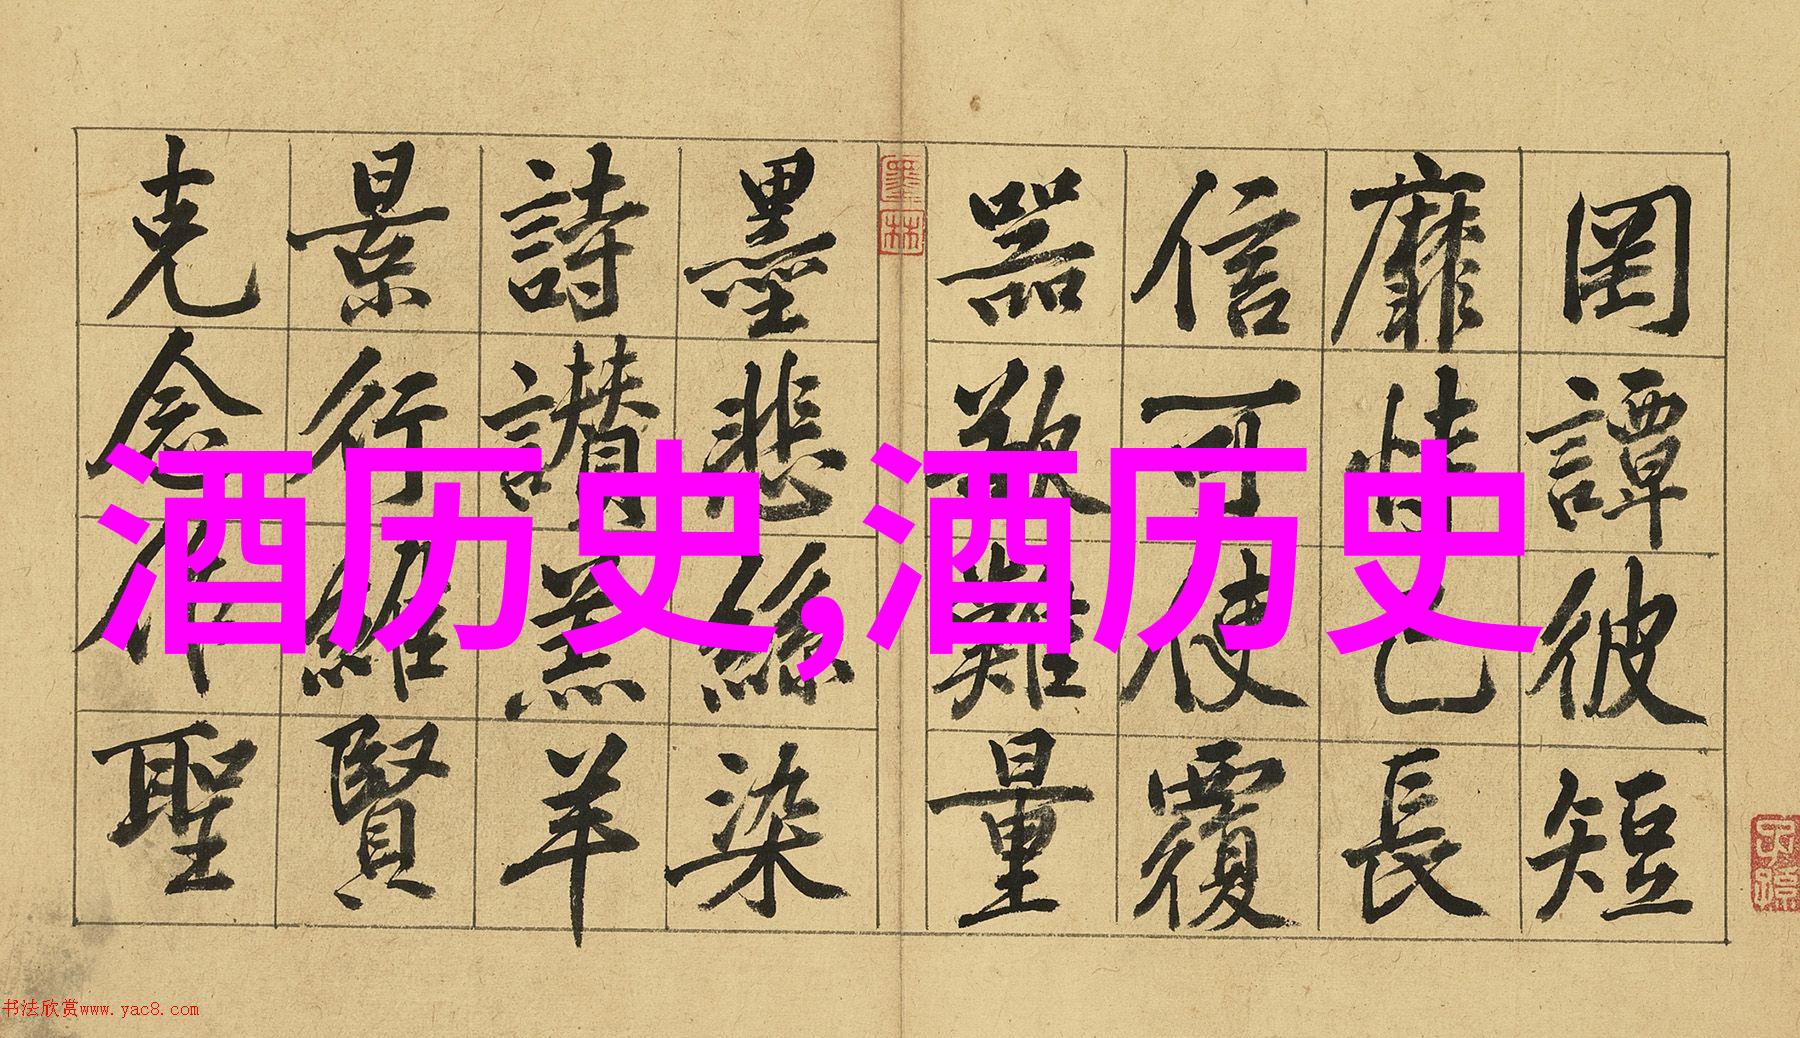 罔譚彼短
靡恃己長
信可使覆
器欲難量
墨林
墨悲絲染
詩讃羔羊
景行維賢
克念作聖
酒历史,酒历史
书法欣赏www.yac8.com